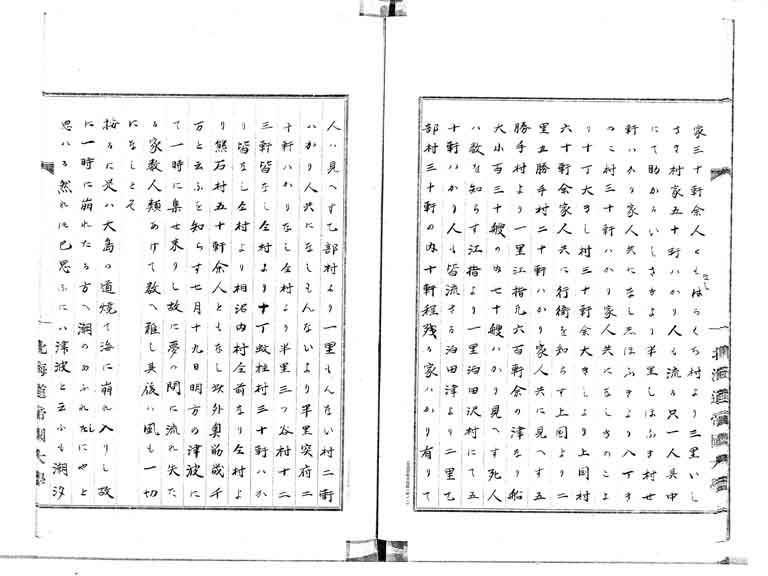 家三十軒余人ともはらくち村より三里いし
さき村家五十軒ハかり人も流る只一人具中
にて助かるいしさきより半里しほふき村廿
軒ハかり家人共になし志ほふきより八丁き
のこ村三十軒ハかり家人共になしきのこよ
り十丁大きし村三十軒余大きしより上国村
六十軒余家人共に行衛を知らす上国より二
里五勝手村二十軒ハかり家人共に見へす五
勝手村より一里江指凡六百軒余の津なり船
大小百三十艘の内七十艘ハかり見へす死人
ハ数を知らす江指より一里泊田沢村にて五
十軒ハかり人も皆流する泊田津より二里乙
部村三十軒の内十軒程残る家ハかり有りて
人ハ見へす乙部村より一里もんない村二軒
ハかり人共になしもんないより半里突府二
十軒ハかりなし仝村より半里三つ谷村十二
三軒皆なし仝村より十丁蚊柱村三十軒ハか
り皆なし仝村より相沼内村仝前なり仝村よ
り熊石村五十軒余人ともなし此外奥筋幾千
万と云ふを知らす七月十九日明方の津波に
て一時に集せ来りし故に夢の間に流れ失た
る家数人類あけて数へ難し其後ハ風も一切
になしとそ
按るに是ハ大島の道焼て海に崩れ入りし故
に一時に崩れたる方へ潮のかふれたしにやと
思ハる然れに已思ふにハ津波と云ふも潮汐
北海道帝国大学
北海道帝国大学